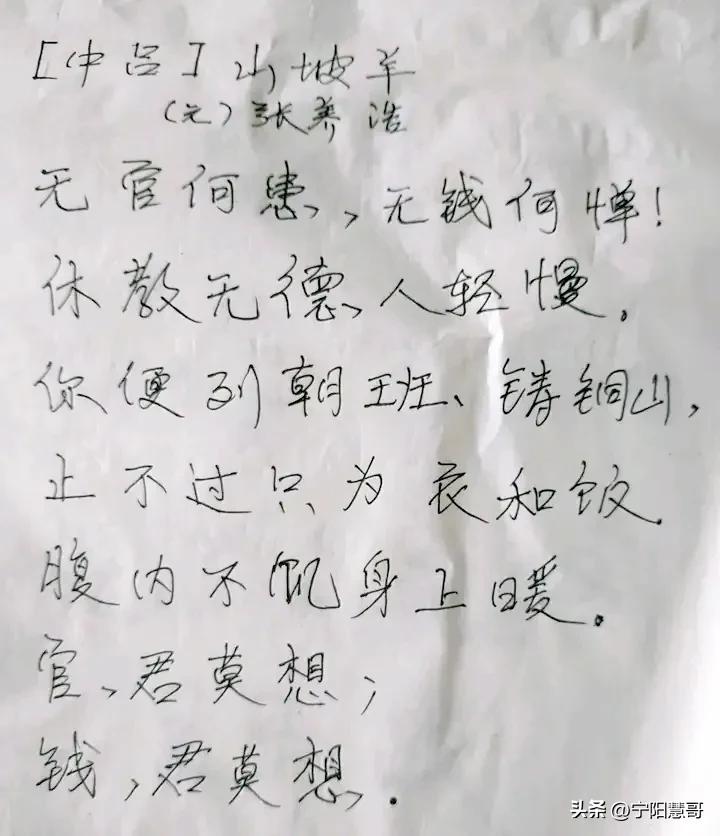 [中吕] 山坡羊
(元) 张养浩
无官何患,无钱何惮!
休教无德人轻慢。
你便列朝班、铸铜山,
止不过只为衣和饭。
腹内不饥身上暖。
官、君莫想;
钱,君莫想.
头条 @宁阳慧哥